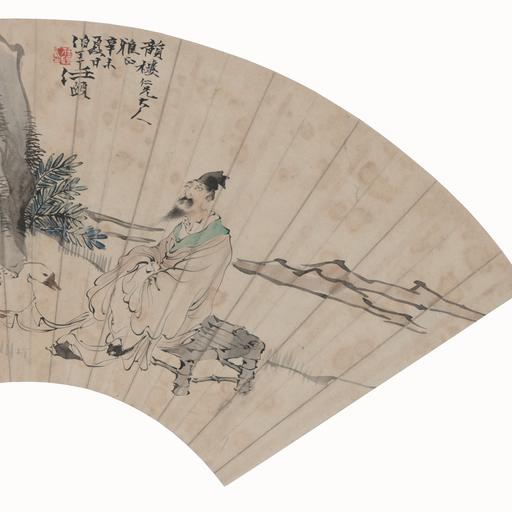 韻樓仁兄大人
雅正
辛未
夏日
伯年任頤